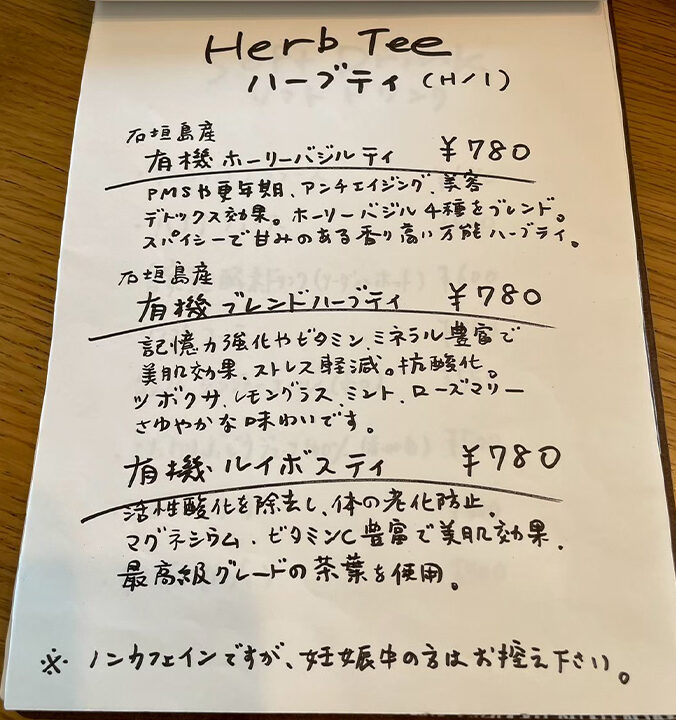 Herb Tee
ハーブティ (H/I)
石垣島産
有機ホーリーバジルティ ¥780
PMSや更年期、アンチエイジング、美容
デトックス効果。ホーリーバジル4種をブレンド。
スパイシーで甘みのある香り高い万能ハーブティ。
石垣島産
有機ブレンドハーブティ ¥780
記憶力強化やビタミン、ミネラル豊富で
美肌効果、ストレス軽減。抗酸化。
ツボクサ、レモングラス、ミント、ローズマリー
さわやかな味わいです。
有機ルイボスティ ¥780
活性酸化を除去し、体の老化防止。
マグネシウム、ビタミンC豊富で美肌効果、
最高級グレードの茶葉を使用。
※ ノンカフェインですが、妊娠中の方はお控え下さい。